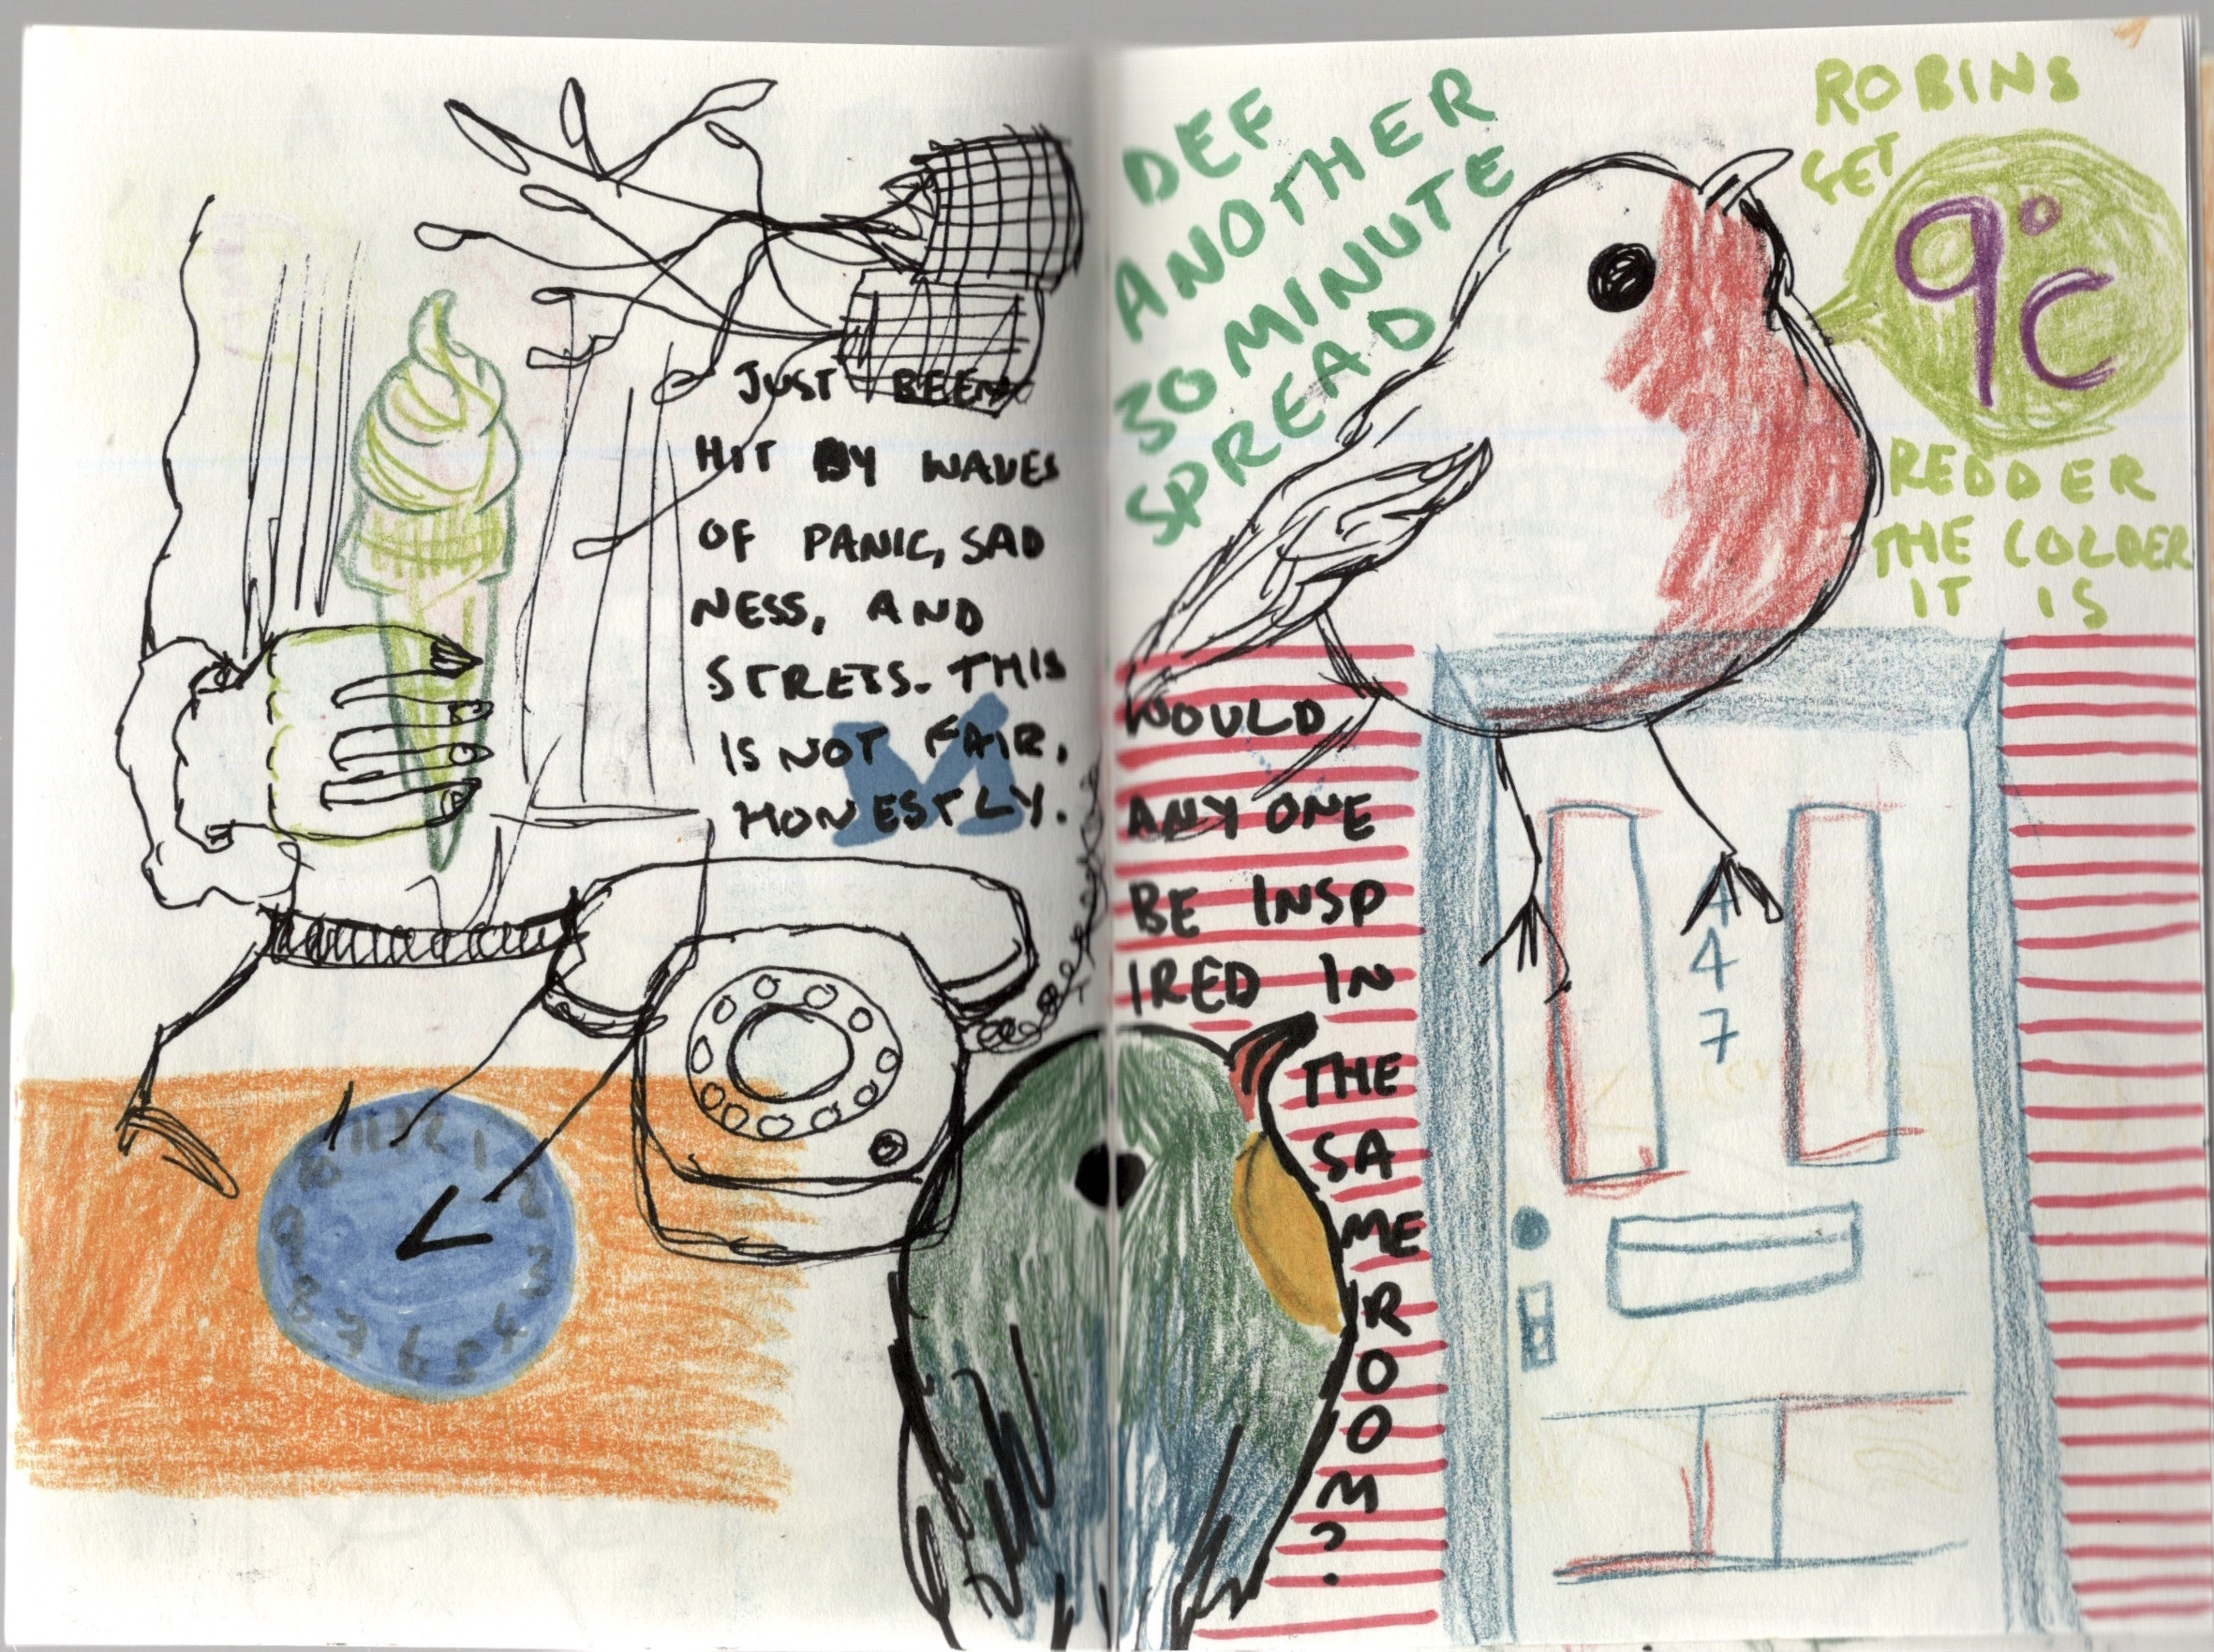 JUST BEEN
HIT BY WAVES
OF PANIC, SAD
NESS, AND
STRESS. THIS
IS NOT FAIR,
HONESTLY.
M
12
1
2
3
4
5
6
7
8
9
10
11
DEF
ANOTHER
30 MINUTE
SPREAD
ROBINS
GET
9°C
REDDER
THE COLDER
IT IS
WOULD
ANYONE
BE INSP
IRED IN
THE
SA
ME
R
O
O
M
?
4
4
7